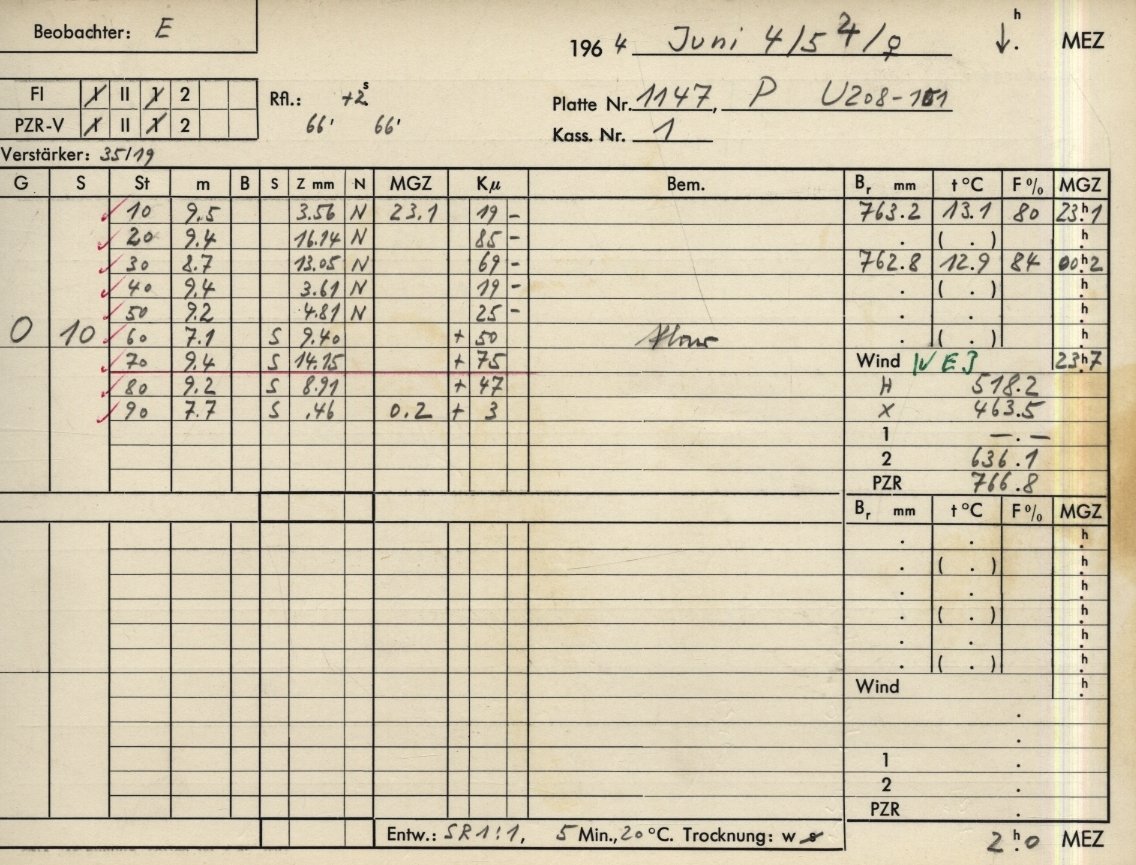 Beobachter: E
1964 Juni 4/5 ♃/♀ ↓. h MEZ
FI I II 1 2
PZR-V I II 1 2
Rfl.: +2s
66' 66'
Platte Nr. 1147, P U208-101
Kass. Nr. 1
Verstärker: 35/19
G S St m B S Z mm N MGZ Kμ Bem. Br mm t °C F % MGZ
10 9.5 3.56 N 23.1 19 - 763.2 13.1 80 23h.1
20 9.4 16.14 N 85 - . ( . ) h.
30 8.7 13.05 N 69 - 762.8 12.9 84 00h.2
40 9.4 3.61 N 19 - . ( . ) h.
50 9.2 4.81 N 25 - . . h.
0 10 60 7.1 S 9.40 + 50 . ( . ) h.
70 9.4 S 14.15 + 75 Wind 23h.7
80 9.2 S 8.91 + 47 H 518.2
90 7.7 S .46 0.2 + 3 X 463.5
1 —.—
2 636.1
PZR 766.8
Br mm t °C F % MGZ
. . h.
. ( . ) h.
. . h.
. ( . ) h.
. . h.
. ( . ) h.
Wind h.
.
.
1 .
2 .
PZR .
Entw.: SR 1:1, 5 Min., 20 °C. Trocknung: w s 2h.0 MEZ